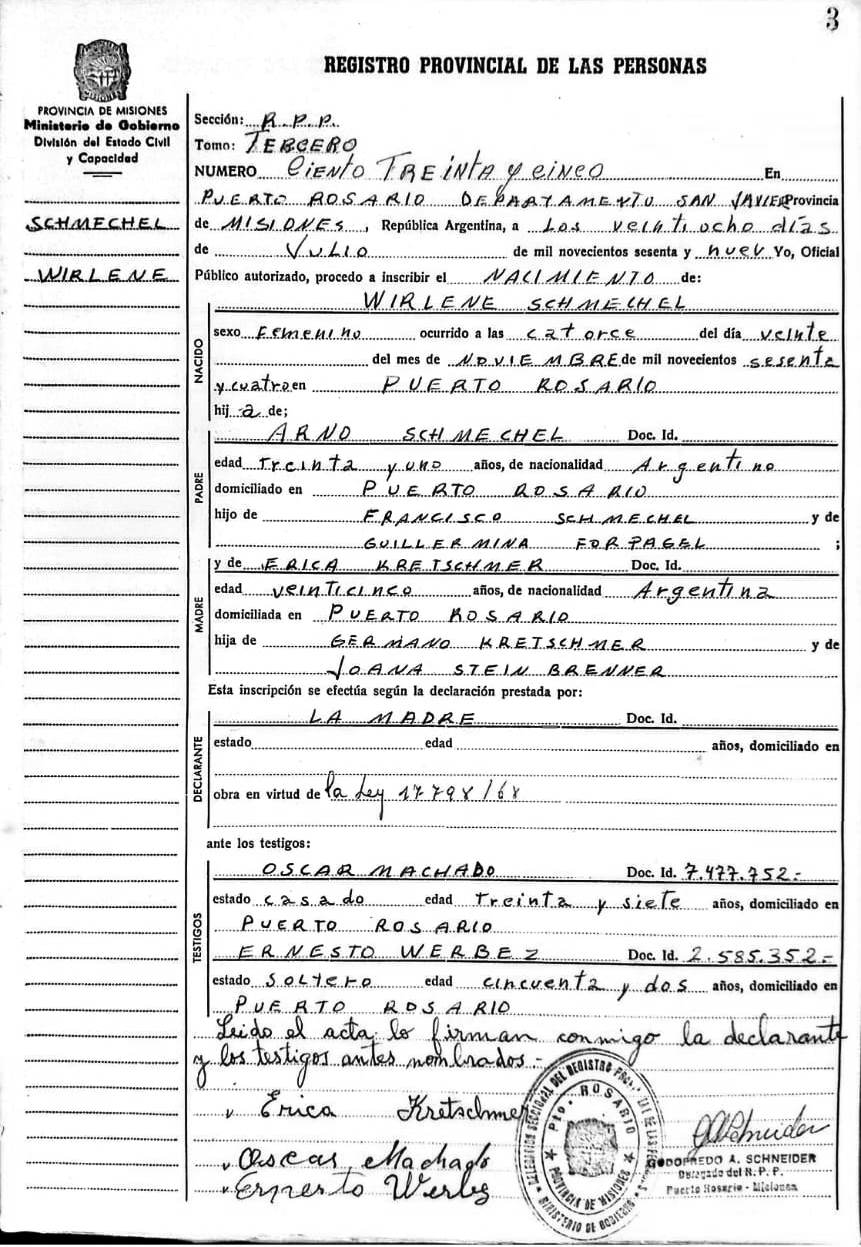 3
REGISTRO PROVINCIAL DE LAS PERSONAS
PROVINCIA DE MISIONES
Ministerio de Gobierno
División del Estado Civil
y Capacidad
SCHMECHEL
WIRLENE
Sección: R.P.P.
Tomo: TERCERO
NUMERO Ciento TREINTA y CINCO En
PUERTO ROSARIO DEPARTAMENTO SAN JAVIER Provincia
de MISIONES, República Argentina, a LOS veintiocho días
de JULIO de mil novecientos sesenta y nuev Yo, Oficial
Público autorizado, procedo a inscribir el NACIMIENTO de:
NACIDO
WIRLENE SCHMECHEL
sexo Femenino ocurrido a las catorce del día veinte
del mes de NOVIEMBRE de mil novecientos sesenta
y cuatro en PUERTO ROSARIO
hij a de;
PADRE
ARNO SCHMECHEL Doc. Id.
edad treinta y uno años, de nacionalidad Argentino
domiciliado en PUERTO ROSARIO
hijo de FRANCISCO SCHMECHEL y de
GUILLERMINA FORPAGEL ;
MADRE
y de ERICA KRETSCHMER Doc. Id.
edad veinticinco años, de nacionalidad Argentina
domiciliada en PUERTO ROSARIO
hija de GERMANO KRETSCHMER y de
JOANA STEIN BRENNER
Esta inscripción se efectúa según la declaración prestada por:
DECLARANTE
LA MADRE Doc. Id.
estado edad años, domiciliado en
obra en virtud de la Ley 17798/68
ante los testigos:
TESTIGOS
OSCAR MACHADO Doc. Id. 7.477.752.-
estado casado edad treinta y siete años, domiciliado en
PUERTO ROSARIO
ERNESTO WERBEZ Doc. Id. 2.585.352.-
estado soltero edad cincuenta y dos años, domiciliado en
PUERTO ROSARIO
Leido el acta lo firman conmigo la declarante
y los testigos antes nombrados.-
Erica Kretschmer
Oscar Machado
Ernesto Werbez
Pto. ROSARIO
PROVINCIA DE MISIONES
MINISTERIO DE GOBIERNO
GODOFREDO A. SCHNEIDER
Delegado del R. P. P.
Puerto Rosario - Misiones